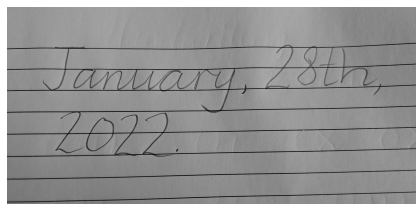 January, 28th,
2022.